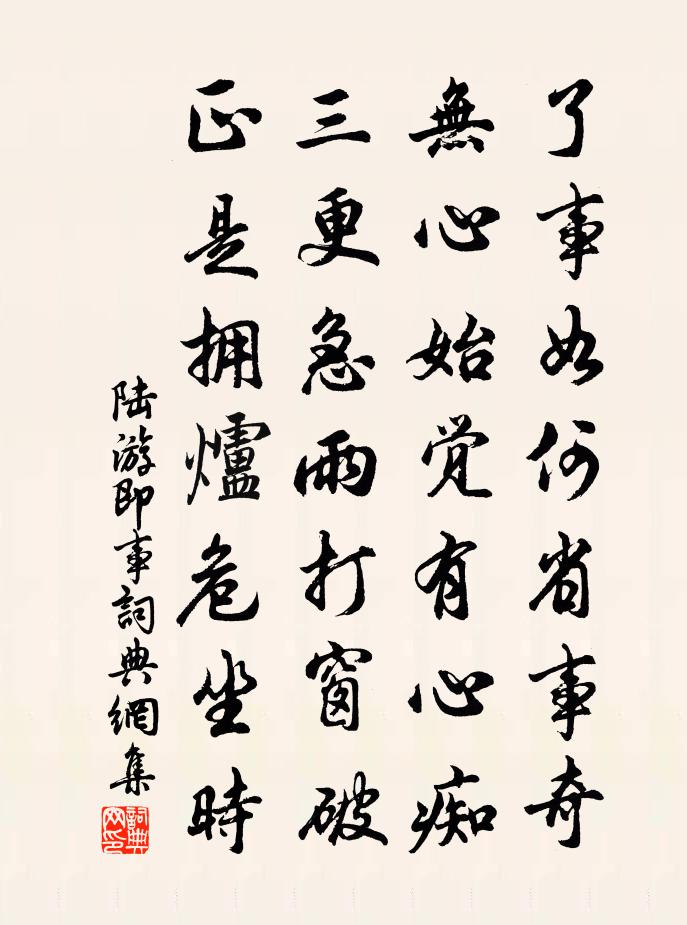 了事如何省事奇
無心始覚有心痴
三更急雨打窗破
正是拥爐危坐時
陆游即事詞典網集
詞典网印